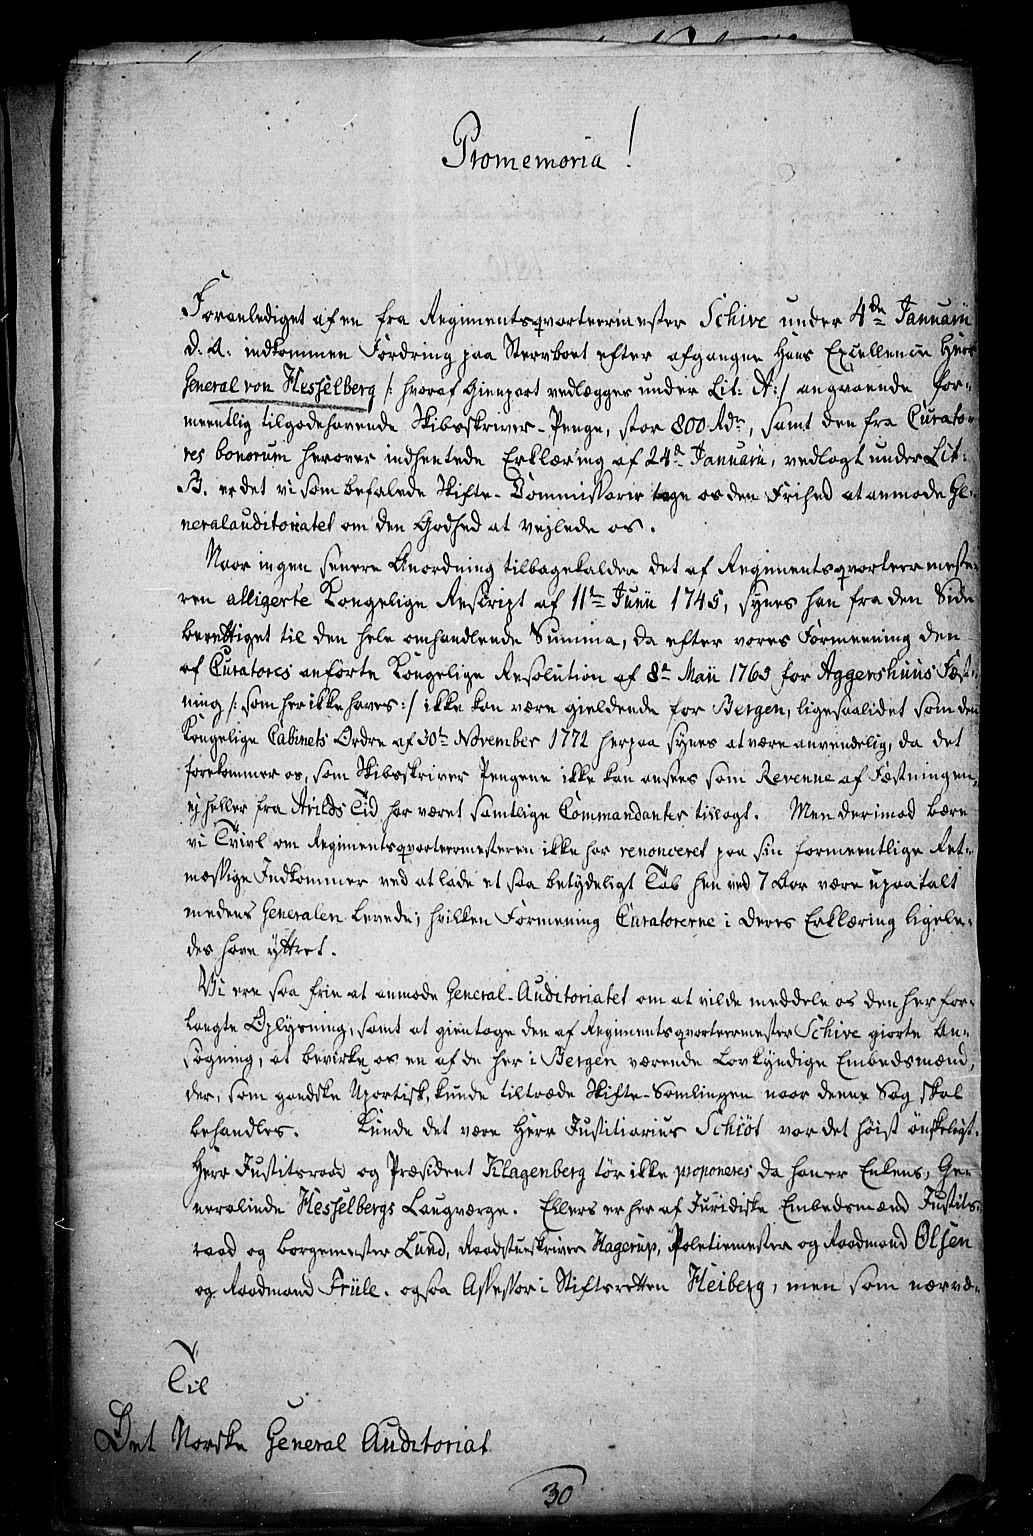 Promemoria!
Foranlediget af en fra Regimentsqvarteermester Schive under 4de Januarii
d. A. indkommen Fordring paa Stervboet efter afgangne Hans Excellence Herr
General von Hesselberg /: hvoraf Gienpart vedlægges under Lit: A:/ angaaende for-
meentlig tilgodehavende Skibsskriver-Penge, stor 800 Rdr, samt den fra Curato-
res bonorum herover indhentede Erklæring af 24de Januarii, vedlagt under Lit:
B. er det vi som befalede Skifte-Commissarier tage os den Frihed at anmode Ge-
neralauditoriatet om den Godhed at vejlede os.
Naar ingen senere Anordning tilbagekalder det af Regimentsqvarteermeste-
ren alligerte Kongelige Rescript af 11te Junii 1745, synes han fra den Side
berettiget til den hele omhandlende Summa, da efter vores Formeening den
af Curatores anførte Kongelige Resolution af 8de Maii 1765 for Aggershuus Fæst-
ning /: som her ikke haves:/ ikke kan være gieldende for Bergen, ligesaalidet som den
Kongelige Cabinets Ordre af 30te November 1772 herpaa synes at være anvendelig, da det
forekommer os, som Skibsskriver Pengene ikke kan ansees som Revenue af Fæstningen,
ej heller fra Arilds Tid har været samtlige Commandanter tillagt. Men derimod bære
vi Tvivl om Regimentsqvarteermesteren ikke har renonceret paa sin formeentlige Ret-
mæssige Indkommer ved at lade et saa betydeligt Tab hen ved 7 Aar være upaatalt
medens Generalen levede; hvilken Formening Curatorerne i deres Erklæring ligele-
des have yttret.
Vi ere saa frie at anmode General-Auditoriatet om at vilde meddele os den her for-
langte Oplysning, samt at gientage den af Regimentsqvarteermester Schive giorte An-
søgning, at bevirke os en af de her i Bergen værende Lovkyndige Embedsmænd,
der, som gandske Upartisk, kunde tiltræde Skifte-Samlingen naar denne Sag skal
behandles. Kunde det være Herr Justitiarius Schiöt var det höist önskeligt.
Herr Justitsraad og Præsident Klagenberg tör ikke proponeres da han er Enkens, Ge-
neralinde Hesselbergs Laugværge. Ellers er her af Juridiske Embedsmænd Justits-
raad og borgemester Lund, Raadstueskriver Hagerup, Politiemester og Raadmand Olsen
og Raadmand Früle. ogsaa Assessor i Stiftsretten Heiberg, men som nærvæ-
Til
Det Norske General Auditoriat
30